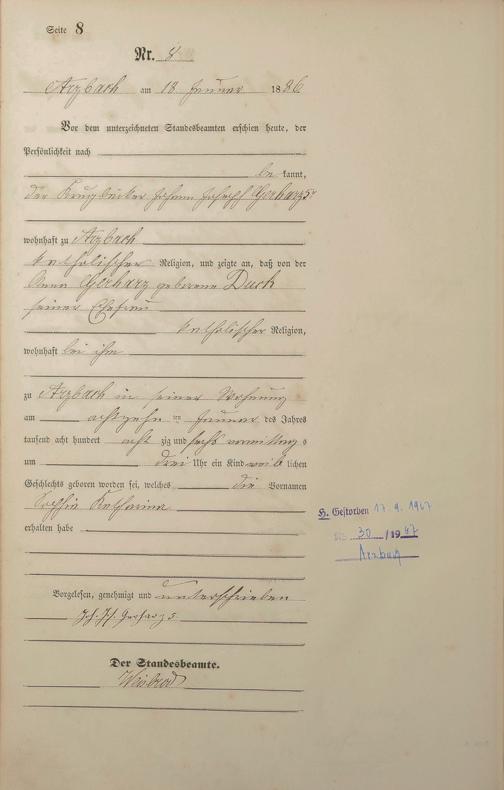 Seite 8
Nr. 8
Arzbach am 18 Januar 1886
Vor dem unterzeichneten Standesbeamten erschien heute, der
Persönlichkeit nach
be kannt,
der Krugbäcker Johann Joseph Gerharz 5r
wohnhaft zu Arzbach
katholischer Religion, und zeigte an, daß von der
Anna Gerharz geborene Duch
seiner Ehefrau
katholischer Religion,
wohnhaft bei ihm
zu Arzbach in seiner Wohnung
am achtzehn ten Januar des Jahres
tausend acht hundert acht zig und sechs vormittags
um drei Uhr ein Kind weib lichen
Geschlechts geboren worden sei, welches die Vornamen
Sophia Katharina
erhalten habe
Vorgelesen, genehmigt und unterschrieben
Joh. Jos. Gerharz 5
Der Standesbeamte.
Weisbrod
H. Gestorben 17.9.1967
30 /1967